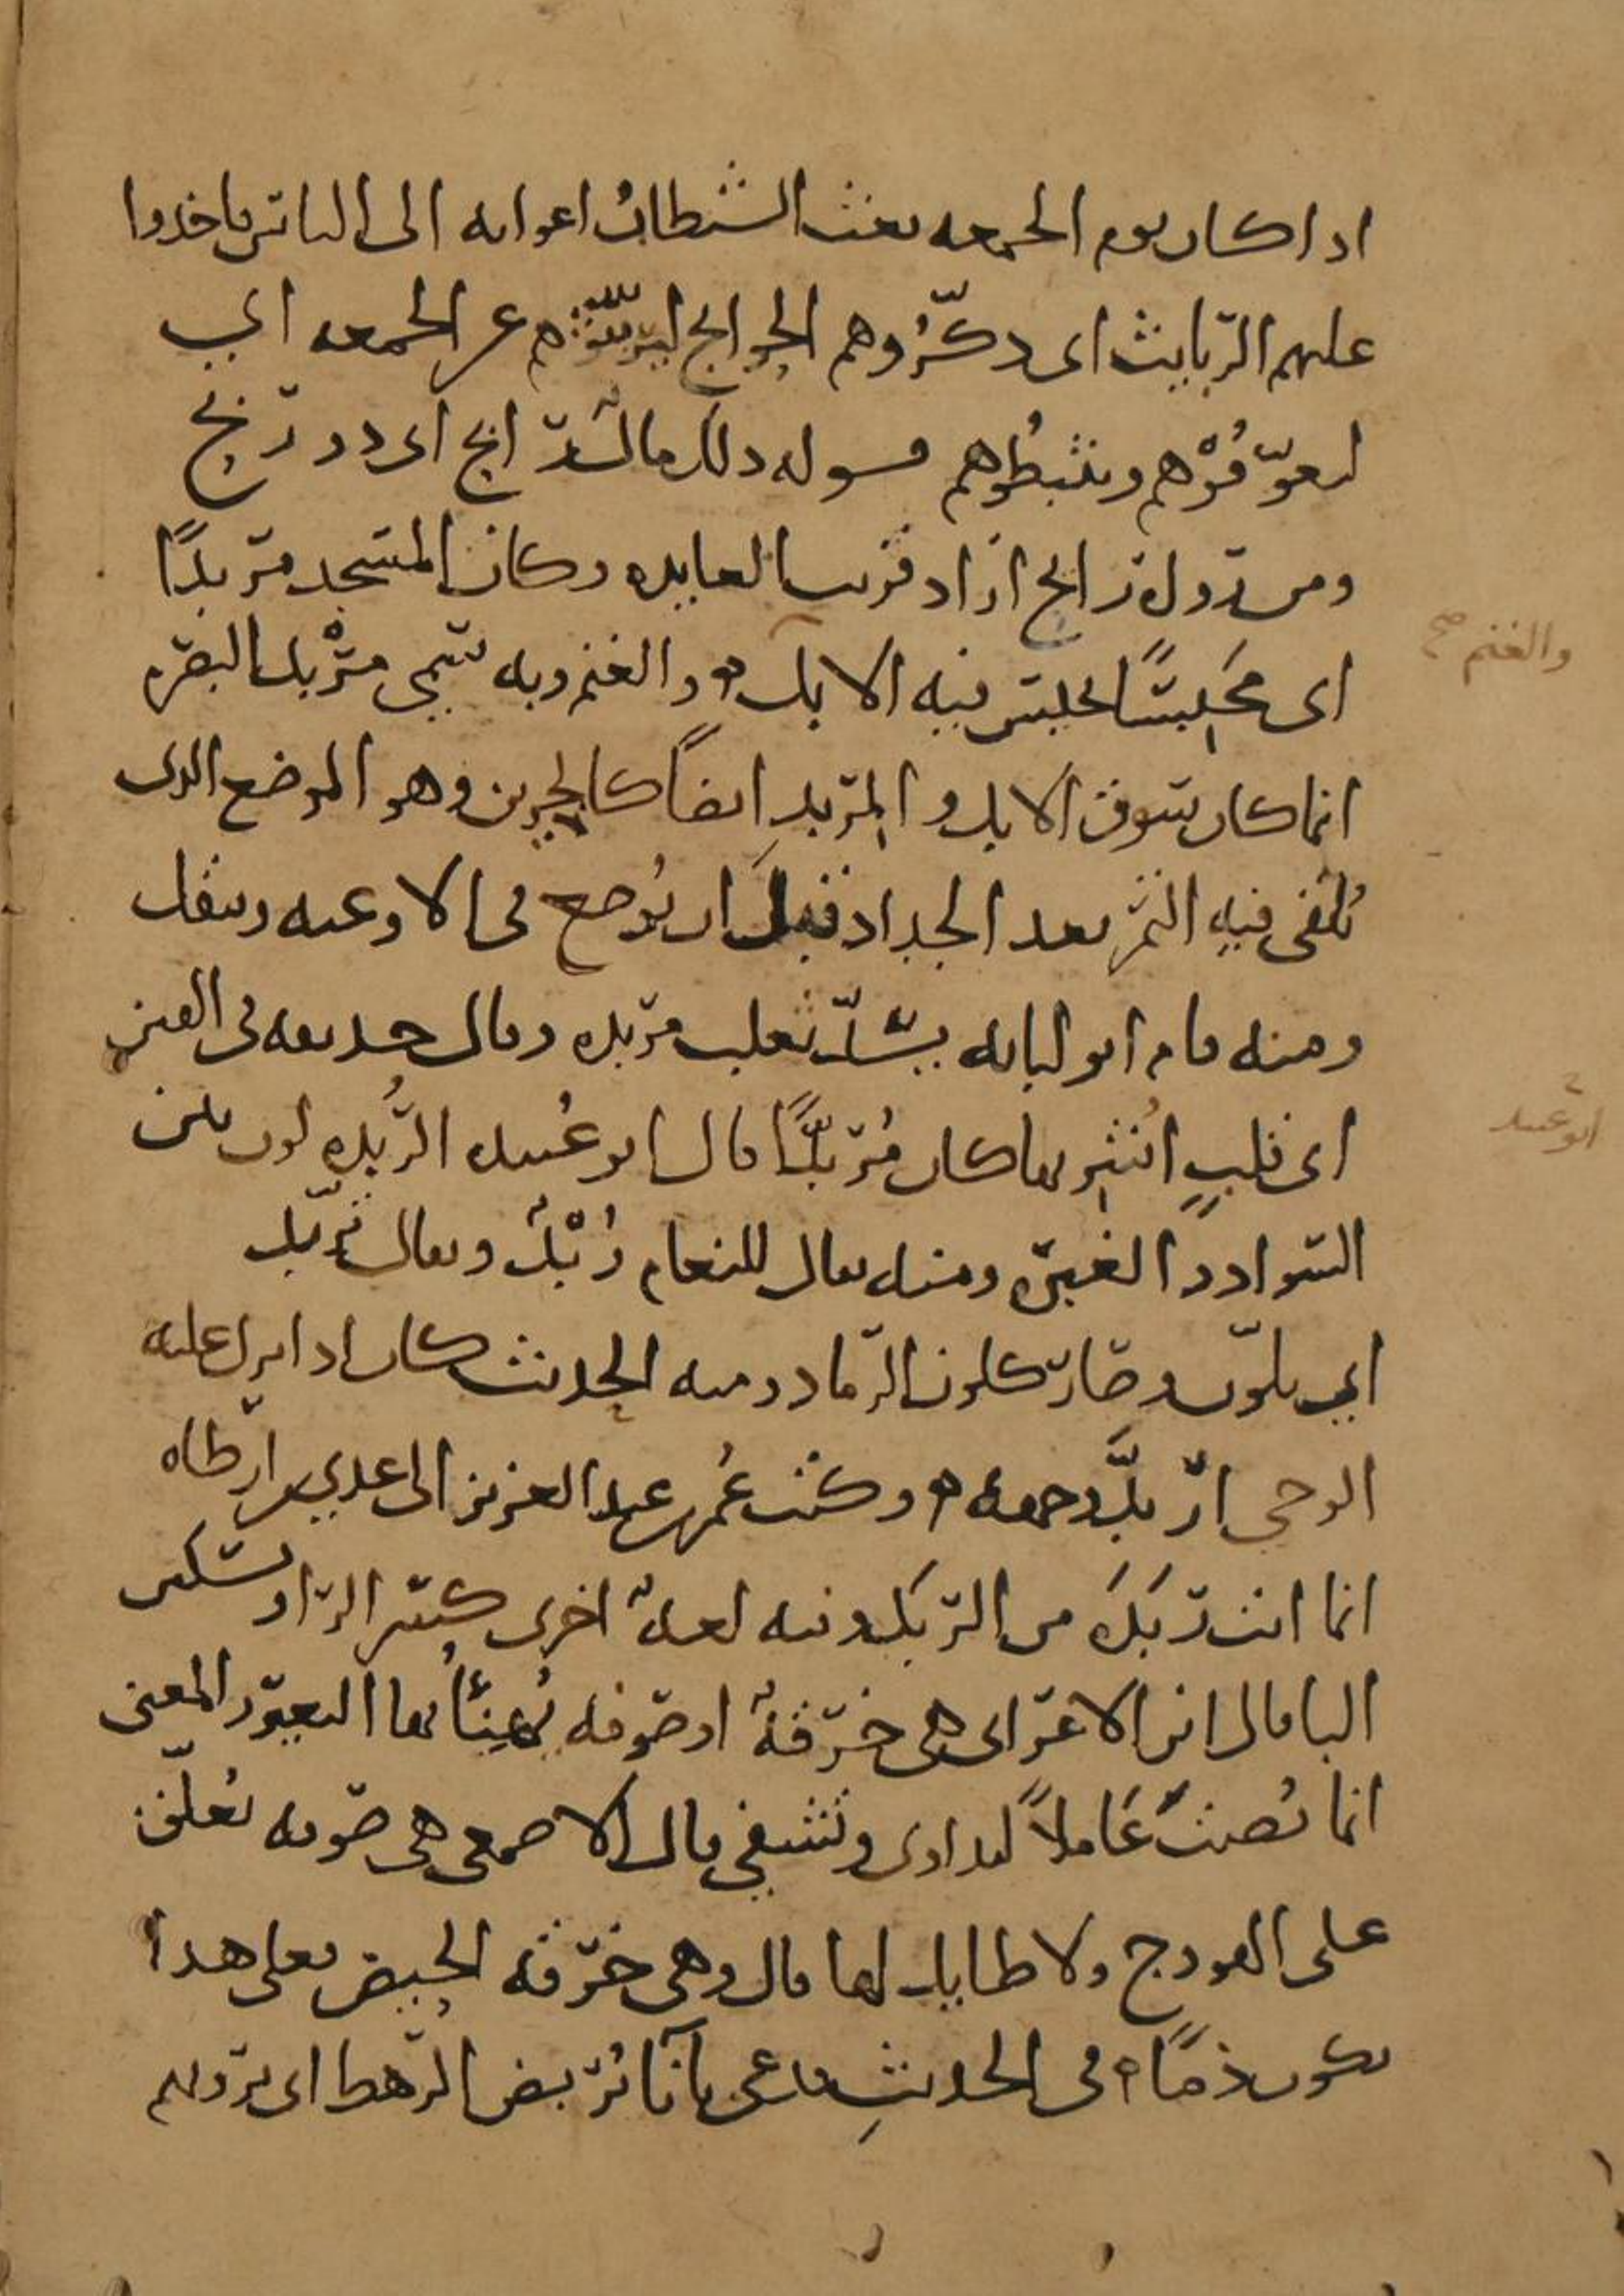 اذا كان يوم الجمعه بعث الشيطان اعوانه الى الناس فاخذوا
عليهم الرّبايث اى ذكّرُوهم الحوايج ليُربّثوهم عن الجمعه اي
ليعوّقُوْهم ويثبطُوهم قوله ذلك مالٌ رابح اى ذو ربح
ومن روى رايح اراد قرب العايده وكان المسجد مربدًا
اى مَحبِسًا يحبس فيه الابل والغنم وبه سُمّى مرْبد البصره
والغنم صح
انما كان سوق الابل والمربدِ ايضاً كالجرين وهو الموضع الذى
يُلقى فيه التمر بعد الجداد قبلَ ان يُوضع فى الاوعيه وينقل
ومنه قام ابو لبابه يسُدّ ثعلب مربده وقال حذيفه فى الفتن
اى قلبٍ اُشْرِبها كان مُربدًّا قال ابو عُبيده الرُّبده لون بين
ابو عبيد
السواد والغبره ومنه يقال للنعام رُبْدٌ ويقال تربّد
اي تلوّن وصار كلون الرّماد ومنه الحديث كان اذا نزل عليه
الوحى اربدَّ وجهه وكتب عُمر بن عبد العزيز الى عدي بن ارطاه
انما انت ربَذَه من الرّبَذ وفيه لغهٌ اخرى كسر الرّا وتسكين
البا قال ابن الاعرابى هى خرقهٌ او صوفه يُهنأُ بها البعير والمعنى
انما نُصبتَ عَاملاً لتداوى وتشفى قال الاصمعى هى صوفه تُعلّق
على الهودج ولا طايل لها قال وهى خرقه الحيض فعلى هذا
يكون ذمًّا فى الحديثِ فدعى بانآ يُربض الرّهط اى يرويهم